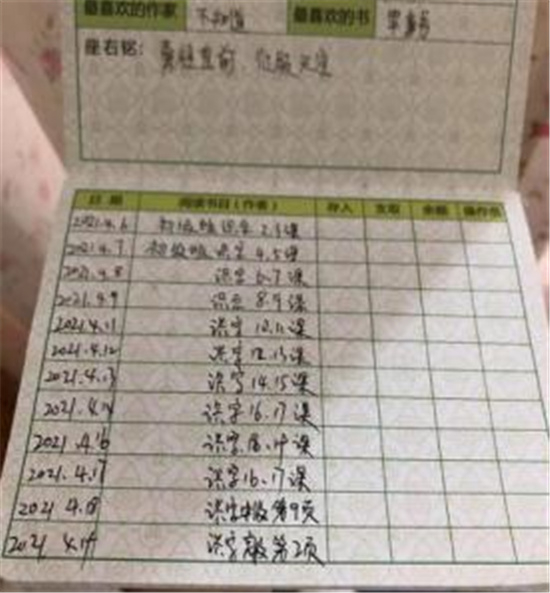 最喜欢的作家 不知道 最喜欢的书
座右铭: 勇往直前、征服天空
日期 阅读书目(作者) 存入 支取 余额 操作员
2021.4.6 初级版识字 2.3课
2021.4.7 初级版识字 4.5课
2021.4.8 识字 6.7课
2021.4.9 识字 8.9课
2021.4.11 识字 10.11课
2021.4.12 识字 12.13课
2021.4.13 识字 14.15课
2021.4.14 识字 16.17课
2021.4.16 识字 18.19课
2021.4.17 识字 16.17课
2021 4.18 识字 第9页
2021 4.19 识字高级第2页